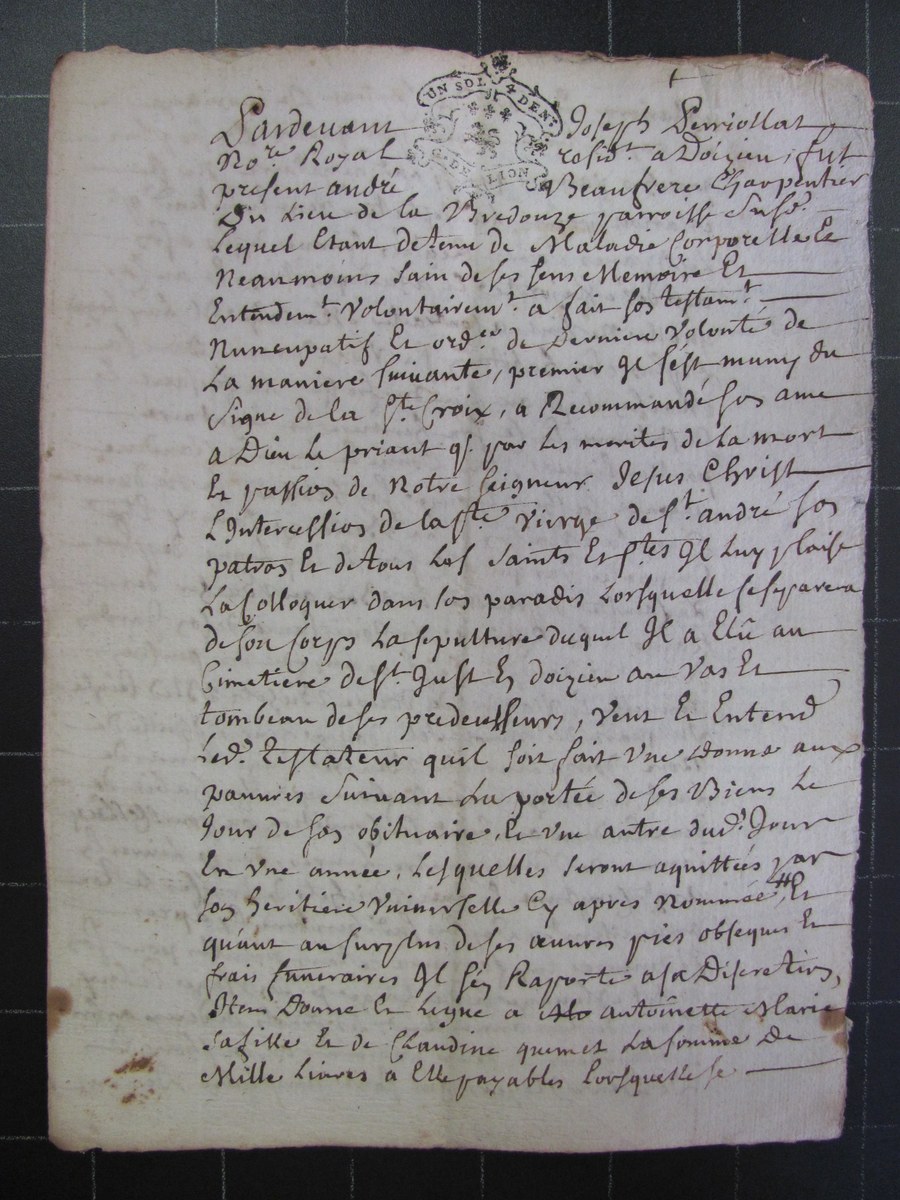 UN SOL 4 DEN.rs
G. DE LION
Pardevant Joseph Perriollat
No.re Royal resid.t a Doizieu, fut
present andré Beaufrere Charpentier
Du Lieu de la Bredouze parroisse susd.e
Lequel Etant detenu de Maladie Corporelle Et
Neanmoins sain de ses sens Memoire Et
Entendem.t Volontairem.t a fait son testam.t
Nuncupatif Et ord.ce de Derniere Volonté de
La maniere suivante, premier Il s'est muny du
Signe de la S.te Croix, a Recommandé son ame
a Dieu Le priant q. par Les merites de La mort
Et passion de Notre Seigneur Jesus Christ
L'Intercession de la S.te Vierge de S.t andré son
patron Et de tous Les Saints Et S.tes Il Luy plaise
La Colloquer dans son paradis Lorsquelle se separera
de son Corps La sepulture duquel Il a Elû au
Cimetiere de S.t Just En doizieu au Vas Et
tombeau de ses predecesseurs, Veut Et Entend
Led. Testateur quil soit fait Une Donne aux
pauvres Suivant La portée de ses Biens Le
Jour de son obituaire, Et Une autre dud. Jour
En Une année, Lesquelles seront aquittées par
son heritiere Universelle Cy apres Nommée, # Et
quant au surplus de ses œuvres pies obseques Et
frais funeraires Il s'en Raporte a sa Discretion,
Item Donne Et Legue a antoinette Marie
sa fille Et de Claudine quemet La somme De
Mille Livres a Elle payables Lorsquelle se